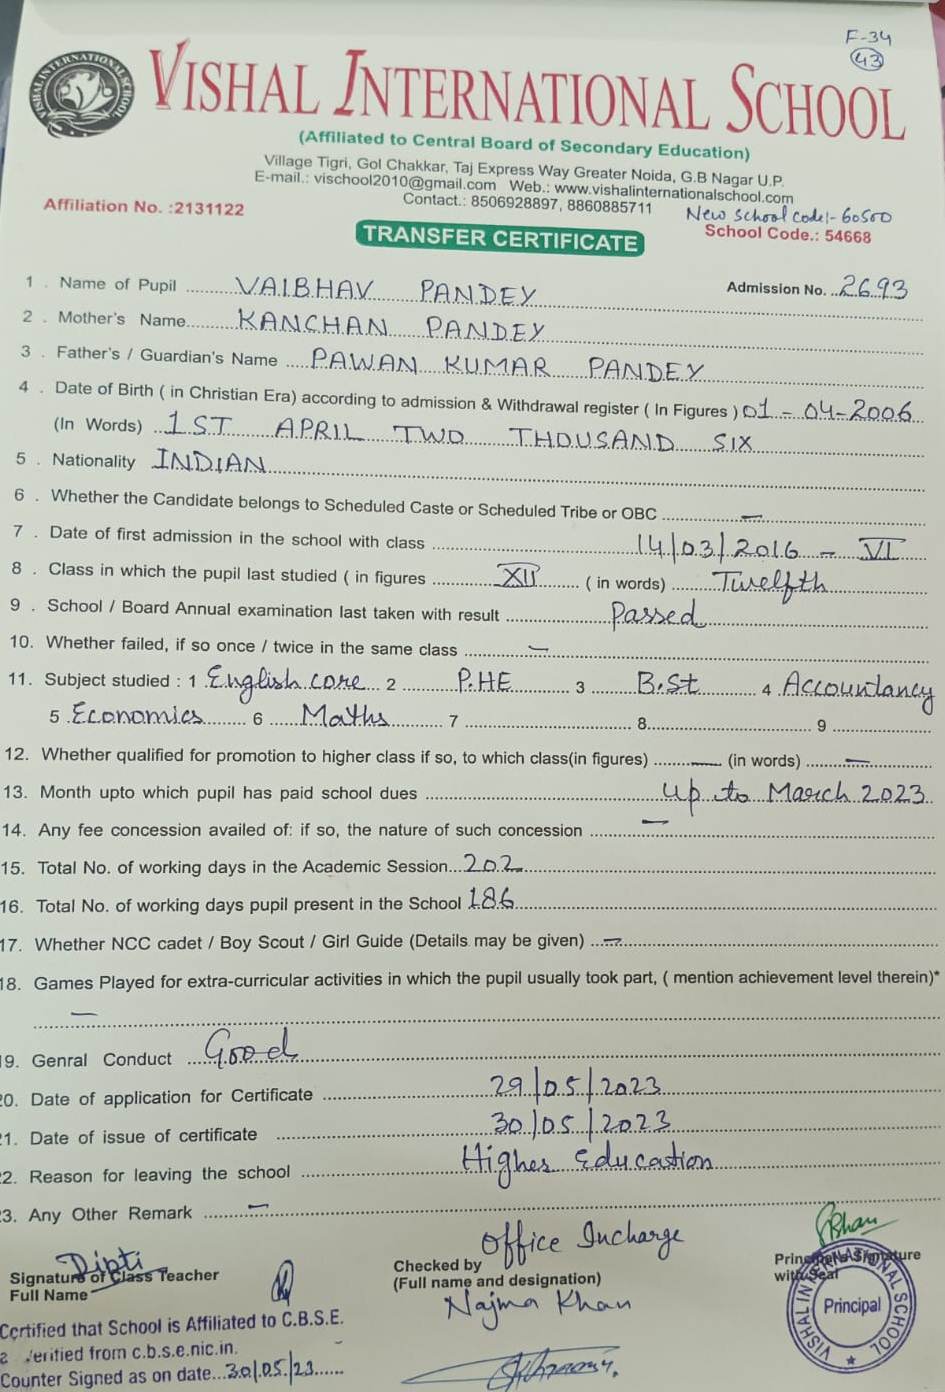 F-34
43
VISHAL INTERNATIONAL SCHOOL
(Affiliated to Central Board of Secondary Education)
Village Tigri, Gol Chakkar, Taj Express Way Greater Noida, G.B Nagar U.P.
E-mail.: vischool2010@gmail.com Web.: www.vishalinternationalschool.com
Contact.: 8506928897, 8860885711
Affiliation No. :2131122
New School code:- 60500
School Code.: 54668
TRANSFER CERTIFICATE
1 . Name of Pupil VAIBHAV PANDEY Admission No. 2693
2 . Mother's Name KANCHAN PANDEY
3 . Father's / Guardian's Name PAWAN KUMAR PANDEY
4 . Date of Birth ( in Christian Era) according to admission & Withdrawal register ( In Figures ) 01-04-2006
(In Words) 1ST APRIL TWO THOUSAND SIX
5 . Nationality INDIAN
6 . Whether the Candidate belongs to Scheduled Caste or Scheduled Tribe or OBC —
7 . Date of first admission in the school with class 14/03/2016 - VI
8 . Class in which the pupil last studied ( in figures XII ( in words) Twelfth
9 . School / Board Annual examination last taken with result Passed
10. Whether failed, if so once / twice in the same class —
11. Subject studied : 1 English core 2 P.HE 3 B.St 4 Accountancy
5 Economics 6 Maths 7 8 9
12. Whether qualified for promotion to higher class if so, to which class(in figures) — (in words) —
13. Month upto which pupil has paid school dues up to March 2023
14. Any fee concession availed of: if so, the nature of such concession —
15. Total No. of working days in the Academic Session 202
16. Total No. of working days pupil present in the School 186
17. Whether NCC cadet / Boy Scout / Girl Guide (Details may be given) —
18. Games Played for extra-curricular activities in which the pupil usually took part, ( mention achievement level therein)*
—
19. Genral Conduct Good
20. Date of application for Certificate 29/05/2023
21. Date of issue of certificate 30/05/2023
22. Reason for leaving the school Higher Education
23. Any Other Remark —
Dipti
Signature of Class Teacher
Full Name
Office Incharge
Checked by
(Full name and designation)
Najma Khan
Principal's Signature
with Seal
VISHAL INTERNATIONAL SCHOOL
Principal
Certified that School is Affiliated to C.B.S.E.
Verified from c.b.s.e.nic.in.
Counter Signed as on date 30/05/23